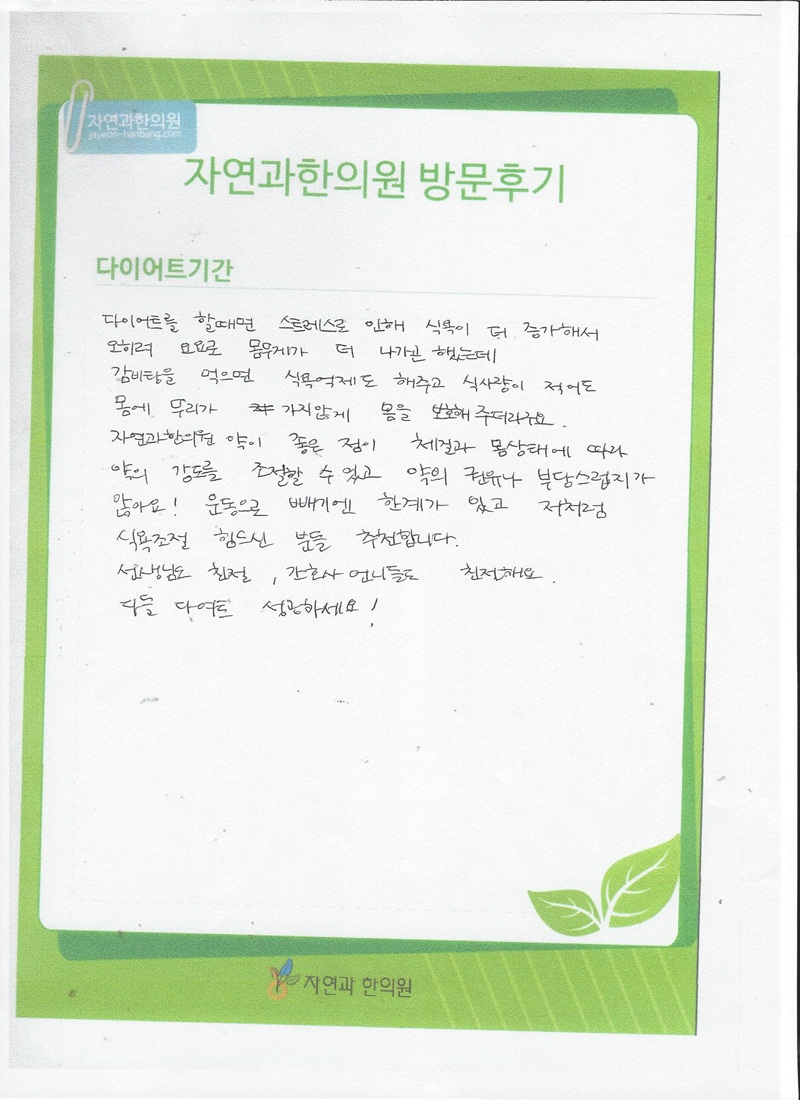 자연과한의원
jayeon-hanbang.com
자연과한의원 방문후기
다이어트기간
다이어트를 할때면 스트레스로 인해 식욕이 더 증가해서
오히려 요요로 몸무게가 더 나가곤 했는데
감비탕을 먹으면 식욕억제도 해주고 식사량이 적어도
몸에 무리가 가지않게 몸을 보호해주더라구요.
자연과한의원 약이 좋은 점이 체질과 몸상태에 따라
약의 강도를 조절할 수 있고 약의 권유나 부담스럽지가
않아요! 운동으로 빼기엔 한계가 있고 저처럼
식욕조절 힘드신 분들 추천합니다.
선생님도 친절, 간호사 언니들도 친절해요.
다들 다여트 성공하세요!
자연과 한의원